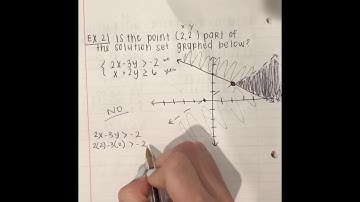 x y
EX 2) Is the point (2,2) part of
the solution set graphed below?
2x-3y>-2 no
x+2y≥6 yes
NO
2x-3y>-2
2(2)-3(2)>-2